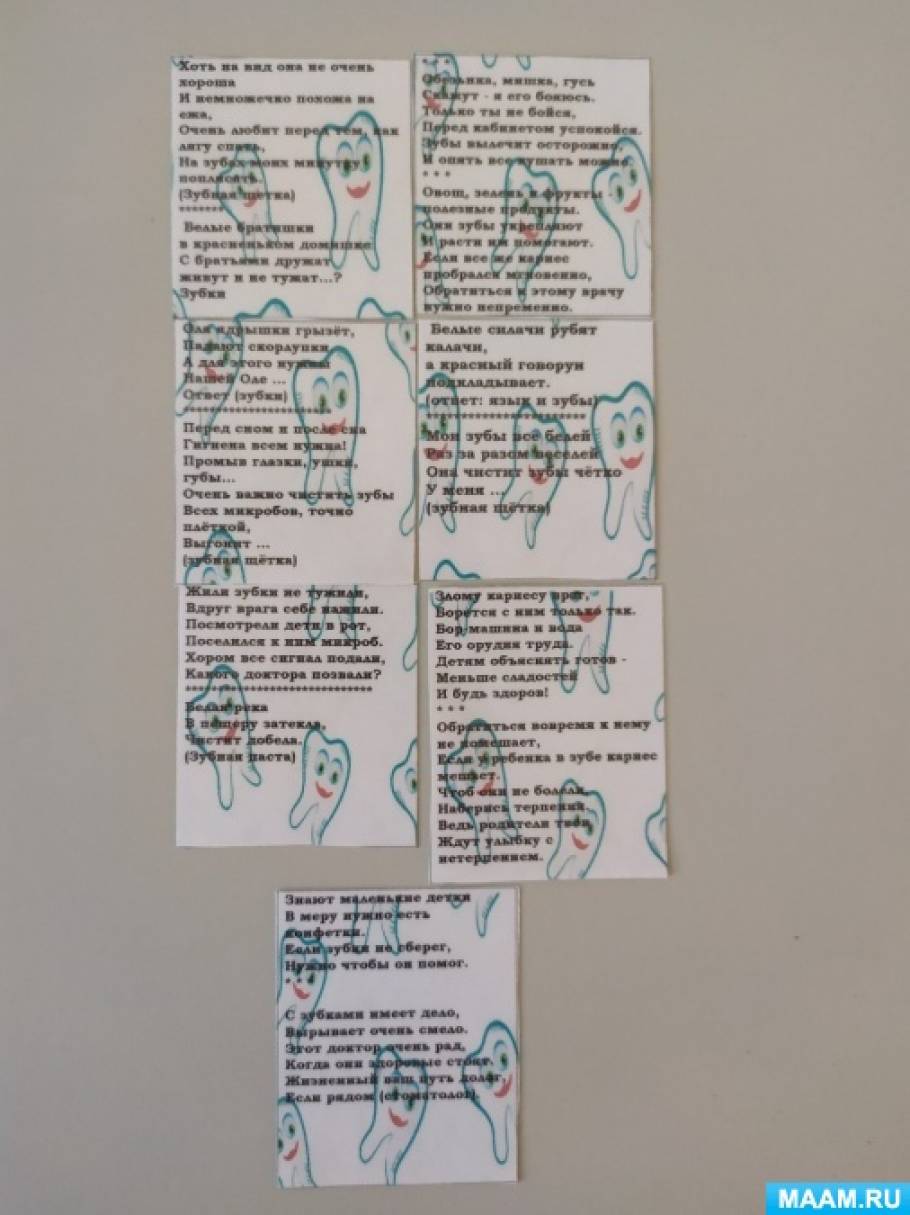 Хоть на вид она не очень
хороша
И немножечко похожа на
ежа,
Очень любит перед тем, как
лягу спать,
На зубах моих минутку
поплясать.
(Зубная щётка)
*******
Белые братишки
в красненьком домишке
С братьями дружат
живут и не тужат...?
Зубки
* * *
Обезьянка, мишка, гусь
Скажут - я его боюсь.
Только ты не бойся,
Перед кабинетом успокойся.
Зубы вылечит осторожно,
И опять все кушать можно.
* * *
Овощ, зелень и фрукты -
полезные продукты.
Они зубы укрепляют
И расти им помогают.
Если все же кариес
пробрался мгновенно,
Обратиться к этому врачу
нужно непременно.
Оля ядрышки грызёт,
Падают скорлупки
А для этого нужны
Нашей Оле ...
Ответ (зубки)
**********************
Перед сном и после сна
Гигиена всем нужна!
Промыв глазки, ушки,
губы...
Очень важно чистить зубы
Всех микробов, точно
плёткой,
Выгонит ...
(зубная щётка)
Белые силачи рубят
калачи,
а красный говорун
подкладывает.
(ответ: язык и зубы)
************************
Мои зубы все белей
Раз за разом веселей
Она чистит зубы чётко
У меня ...
(зубная щётка)
Жили зубки не тужили,
Вдруг врага себе нажили.
Посмотрели дети в рот,
Поселился к ним микроб.
Хором все сигнал подали,
Какого доктора позвали?
****************************
Белая река
В пещеру затекла,
Чистит добела.
(Зубная паста)
Злому кариесу враг,
Борется с ним только так.
Бор-машина и вода
Его орудия труда.
Детям объяснять готов -
Меньше сладостей
И будь здоров!
* * *
Обратиться вовремя к нему
не помешает,
Если у ребенка в зубе кариес
мешает.
Чтоб они не болели,
Наберись терпения.
Ведь родители твои
Ждут улыбку с
нетерпением.
Знают маленькие детки
В меру нужно есть
конфетки.
Если зубки не сберег,
Нужно чтобы он помог.
* * *
С зубками имеет дело,
Вырывает очень смело.
Этот доктор очень рад,
Когда они здоровые стоят.
Жизненный ваш путь долог,
Если рядом (стоматолог).
MAAM.RU